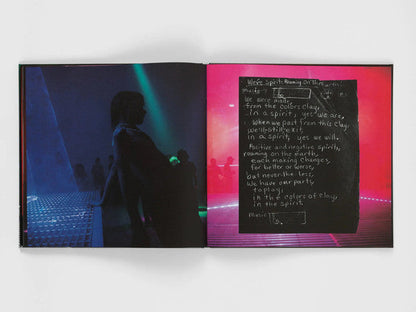 We're Spirit Roaming on this earth.
Music
We were made,
from the colors clay,
in a spirit, yes we are,
When we past from this clay,
we'll still exit,
in a spirit, yes we will.
Positive and negative spirits,
roaming on the earth,
each making changes,
for better or worse,
but never the less
We have our parts
to play,
in the colors of clay,
in the spirit.
Music